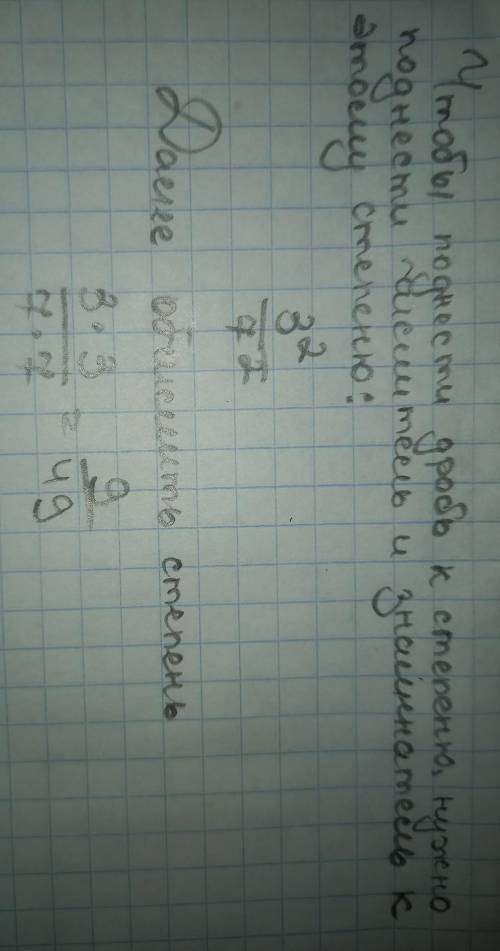 Чтобы поднести дробь к степеню, нужно
поднести числитель и знаминатель к
этому степеню:
3²
7²
Далее обчислить степень
3·3 = 9
7·7 49